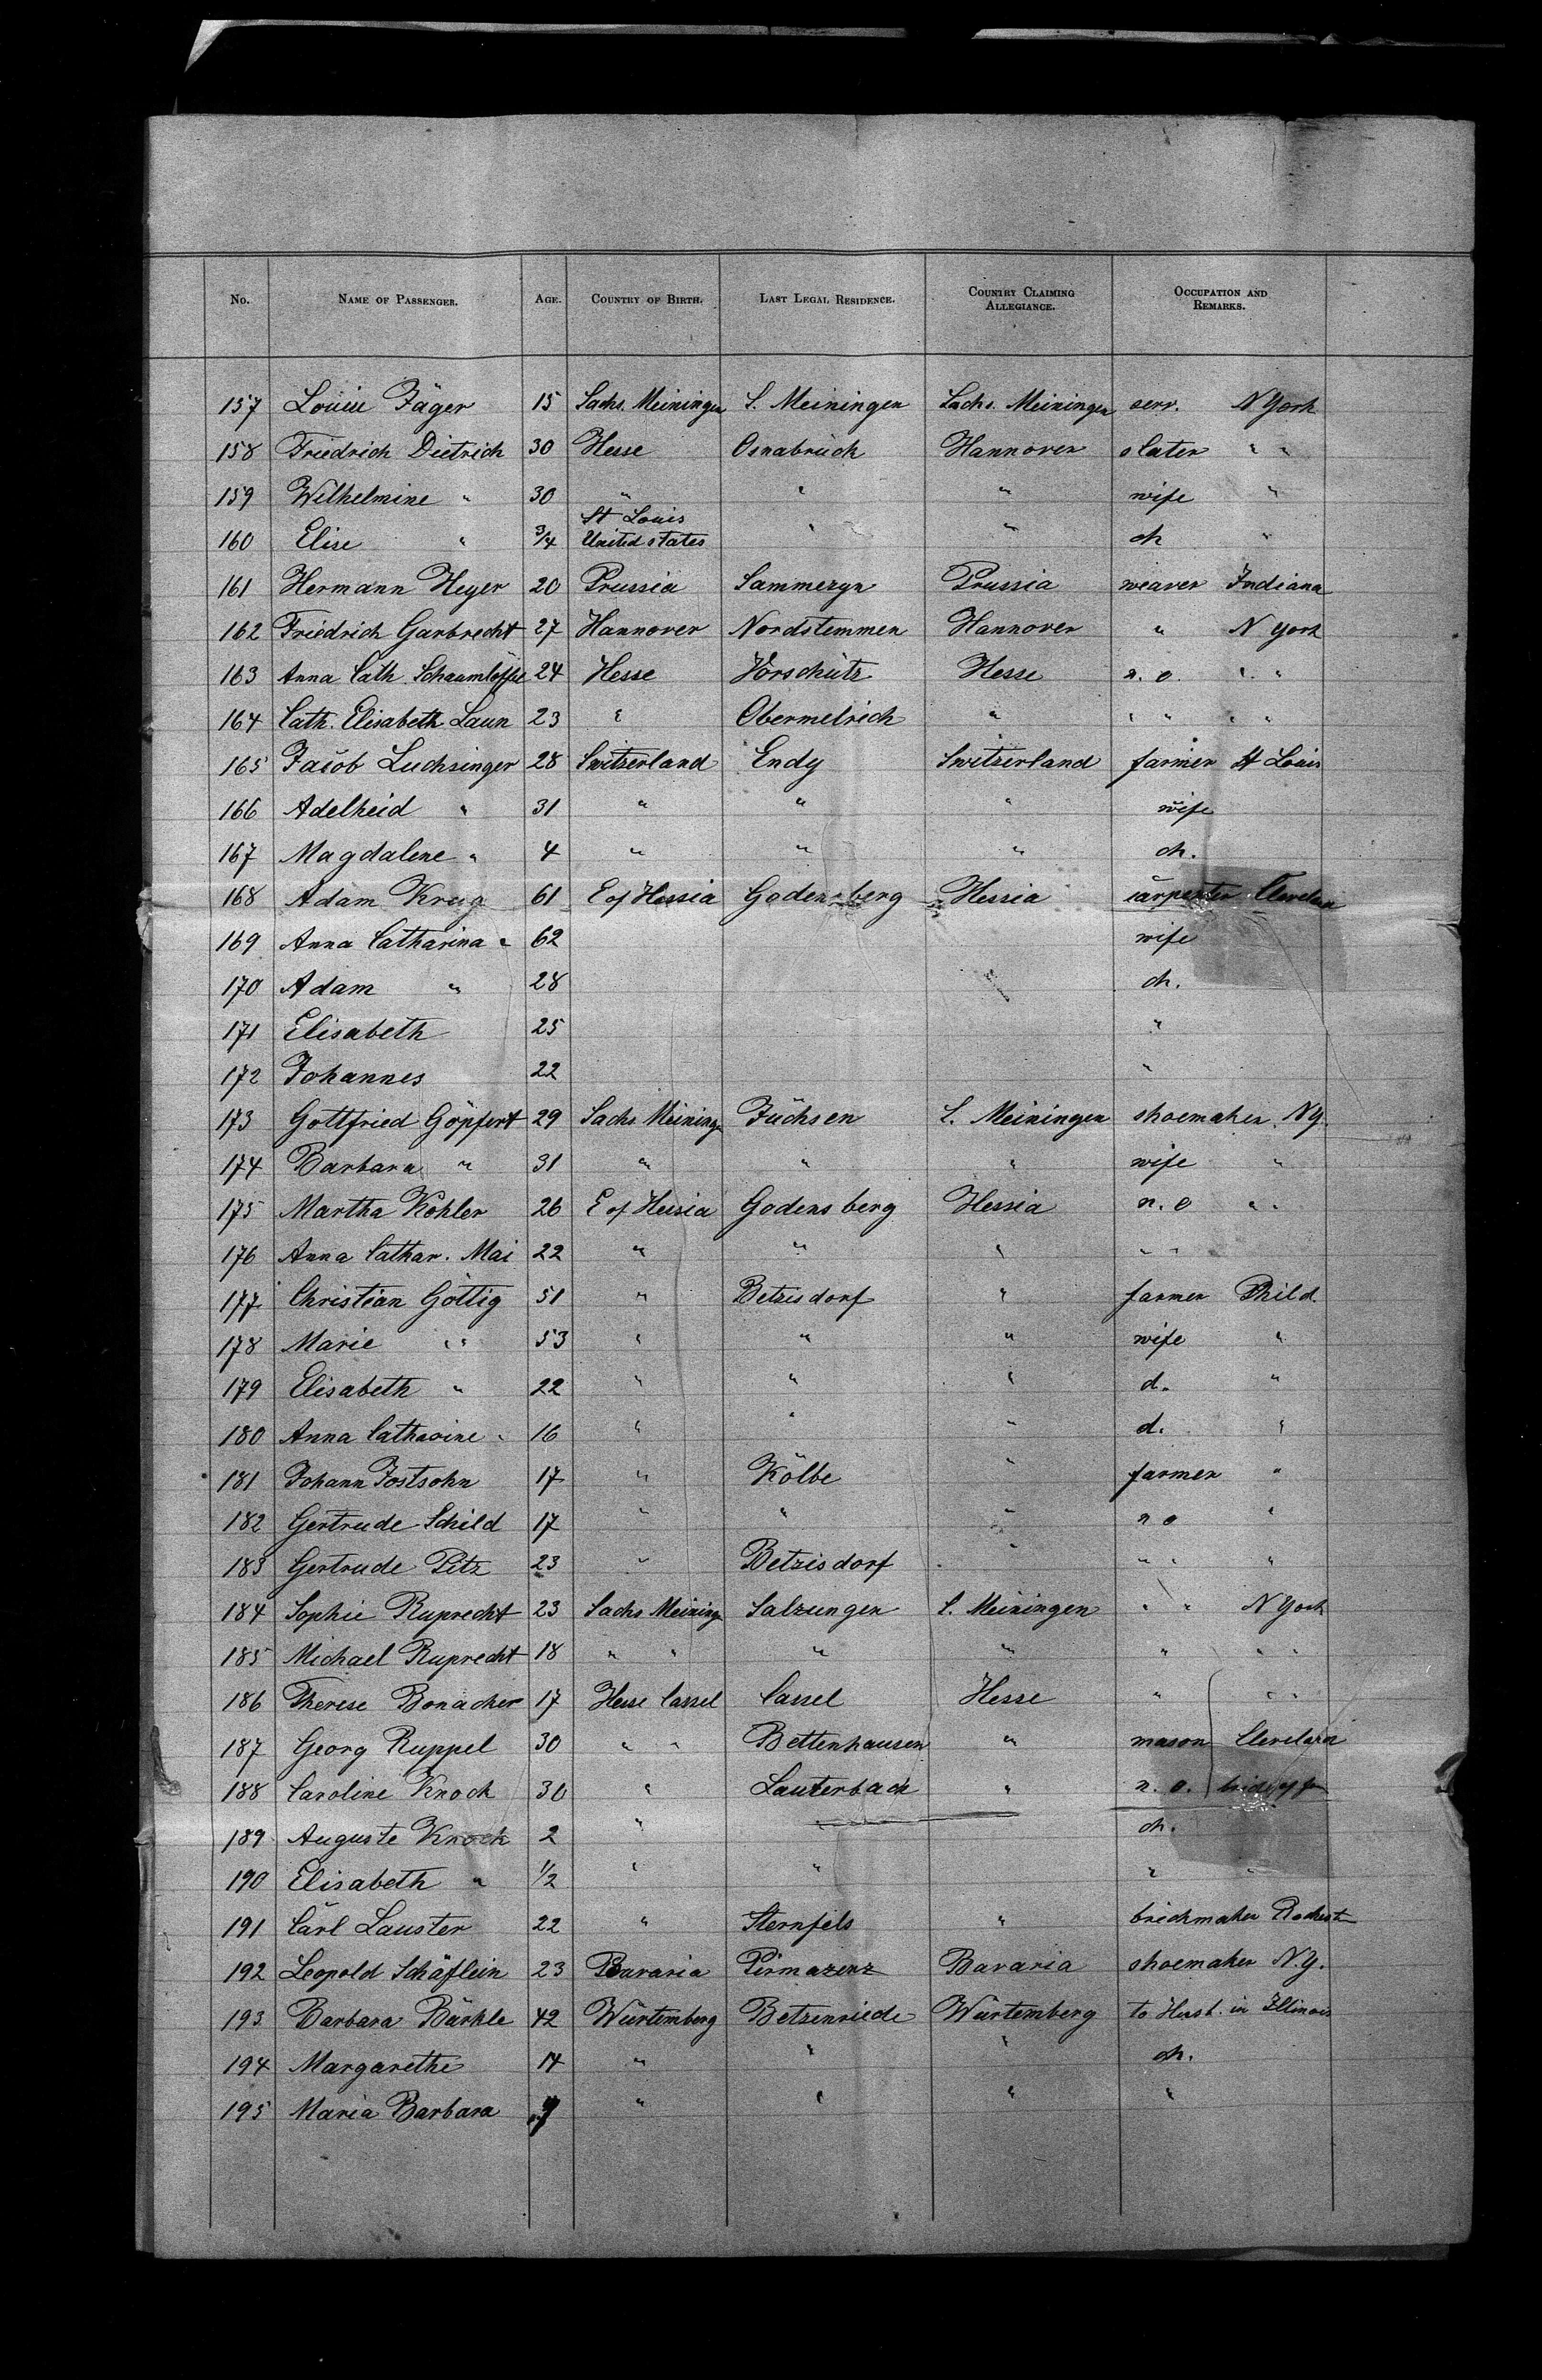 No. NAME OF PASSENGER. AGE. COUNTRY OF BIRTH. LAST LEGAL RESIDENCE. COUNTRY CLAIMING ALLEGIANCE. OCCUPATION AND REMARKS.
157 Louise Jäger 15 Sachs. Meiningen S. Meiningen Sachs. Meiningen serv. N York
158 Friedrich Dietrich 30 Hesse Osnabrück Hannover slater " "
159 Wilhelmine " 30 " " " wife "
160 Elise " 3/4 St Louis United states " " ch "
161 Hermann Heyer 20 Prussia Sammeryn Prussia weaver Indiana
162 Friedrich Garbrecht 27 Hannover Nordstemmen Hannover " N York
163 Anna Cath. Schaumlöffel 24 Hesse Vorschütz Hesse n. o. " "
164 Cath. Elisabeth Laun 23 " Obermelrich " " " " "
165 Jacob Luchsinger 28 Switzerland Endy Switzerland farmer St Louis
166 Adelheid " 31 " " " wife
167 Magdalene " 4 " " " ch.
168 Adam Krug 61 E of Hessia Godensberg Hessia carpenter Clevelan
169 Anna Catharina " 62 wife
170 Adam " 28 ch.
171 Elisabeth 25 "
172 Johannes 22 "
173 Gottfried Göpfert 29 Sachs Meininge Jüchsen S. Meiningen shoemaker NY.
174 Barbara " 31 " " " wife "
175 Martha Köhler 26 E of Hessia Godensberg Hessia n. o " "
176 Anna Cathar. Mai 22 " " " " "
177 Christian Göttig 51 " Betzisdorf " farmer Phild.
178 Marie " " 53 " " " wife "
179 Elisabeth " 22 " " " d. "
180 Anna Catharine " 16 " " " d. "
181 Johann Jostsohn 17 " Kölbe " farmer "
182 Gertrude Schild 17 " " " n o "
183 Gertrude Pitz 23 " Betzisdorf " " " "
184 Sophie Ruprecht 23 Sachs Meininge Salzungen S. Meiningen " " N York
185 Michael Ruprecht 18 " " " " " " "
186 Therese Bonacker 17 Hesse Cassel Cassel Hesse " " "
187 Georg Ruppel 30 " " Bettenhausen " mason Cleveland
188 Caroline Knoch 30 " Lauterbach " n. o.
189 Auguste Knoch 2 " " " ch.
190 Elisabeth " 1/2 " " " "
191 Carl Lauster 22 " Sternfels " brickmaker Rochest
192 Leopold Schäflein 23 Bavaria Pirmazenz Bavaria shoemaker N.Y.
193 Barbara Bürkle 42 Würtemberg Betzenriede Würtemberg to Husb. in Illinois
194 Margarethe 14 " " " ch.
195 Maria Barbara 9 " " " "